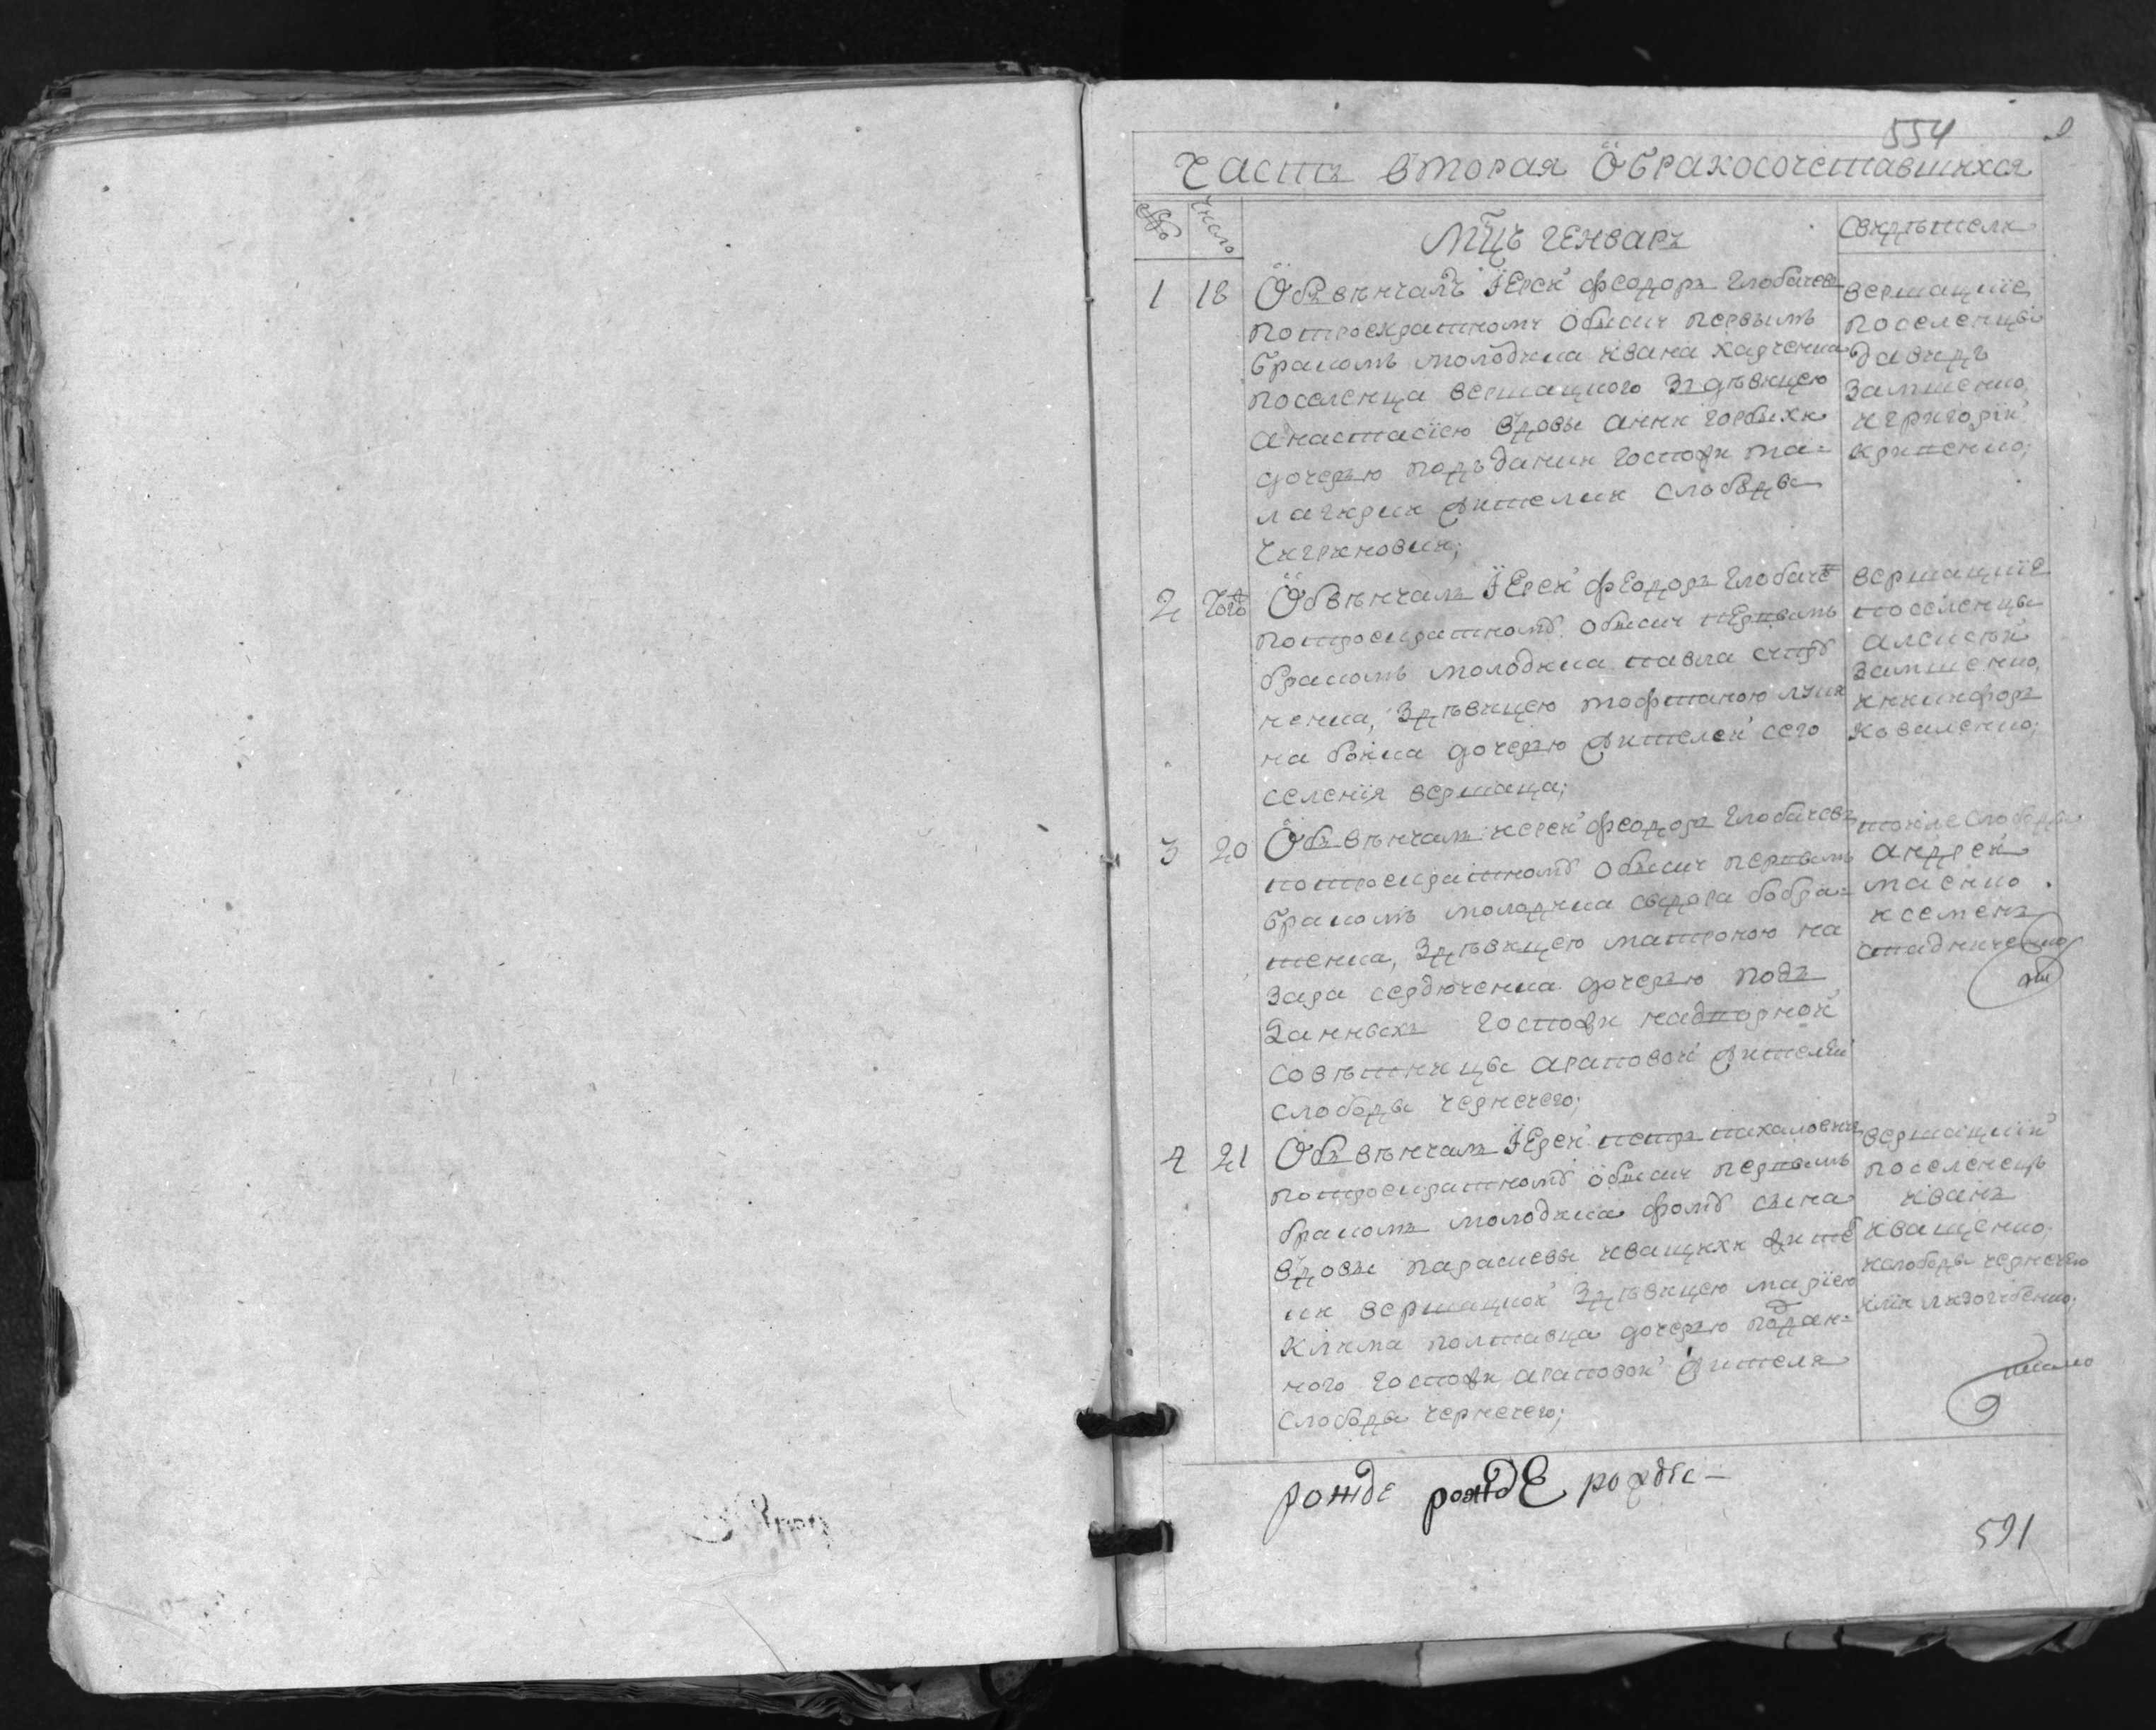 554
Часть вторая О бракосочетавшихся
Число
Мцъ генварь
Свидѣтели
1 18 Обвѣнчалъ Іерей феодоръ Глобачев
потроекратному обыску первымъ
бракомъ молодика ивана харченка
поселенца вершацкого здѣвицею
анастасїею вдовы анни горбихи
дочерью подъданки госпожи
жителки слободы
вершацкие
поселенци
давидъ
Замшенко,
игригорій
крипенко;
2 Того Обвѣнчалъ Іерей феодоръ Глобаче
потроекратному обыску первымъ
бракомъ молодика павла
ненка, здѣвицею дочерью жителей сего
селенія вершаца;
вершацкие
поселенцы
алексѣй
Замшенко,
иникифоръ
коваленко;
3 20 Объвѣнчалъ иерей феодоръ Глобачевъ
потроекратному обыску первымъ
бракомъ молодика сидора бобра-
шенка, здѣвицею матроною на
зара сердюченка дочерью подъ
данныхъ госпожи надворной
совѣтницы араповой жителей
слободы чернечего;
тойже слободы
андрей
маенко
исеменъ
стадниченко
4 21 Объвѣнчалъ Іерей петръ
потроекратному обыску первымъ
бракомъ молодика фому сына
вдовы параскевы иващихи жите
лки вершацкой здѣвицею марїею
клима полтавца дочерью поддан-
ного госпожи араповой жителя
слободы чернечего;
вершацкий
поселенецъ
иванъ
иващенко,
ислободы чернечего
рожде рождЕ рожде—
591